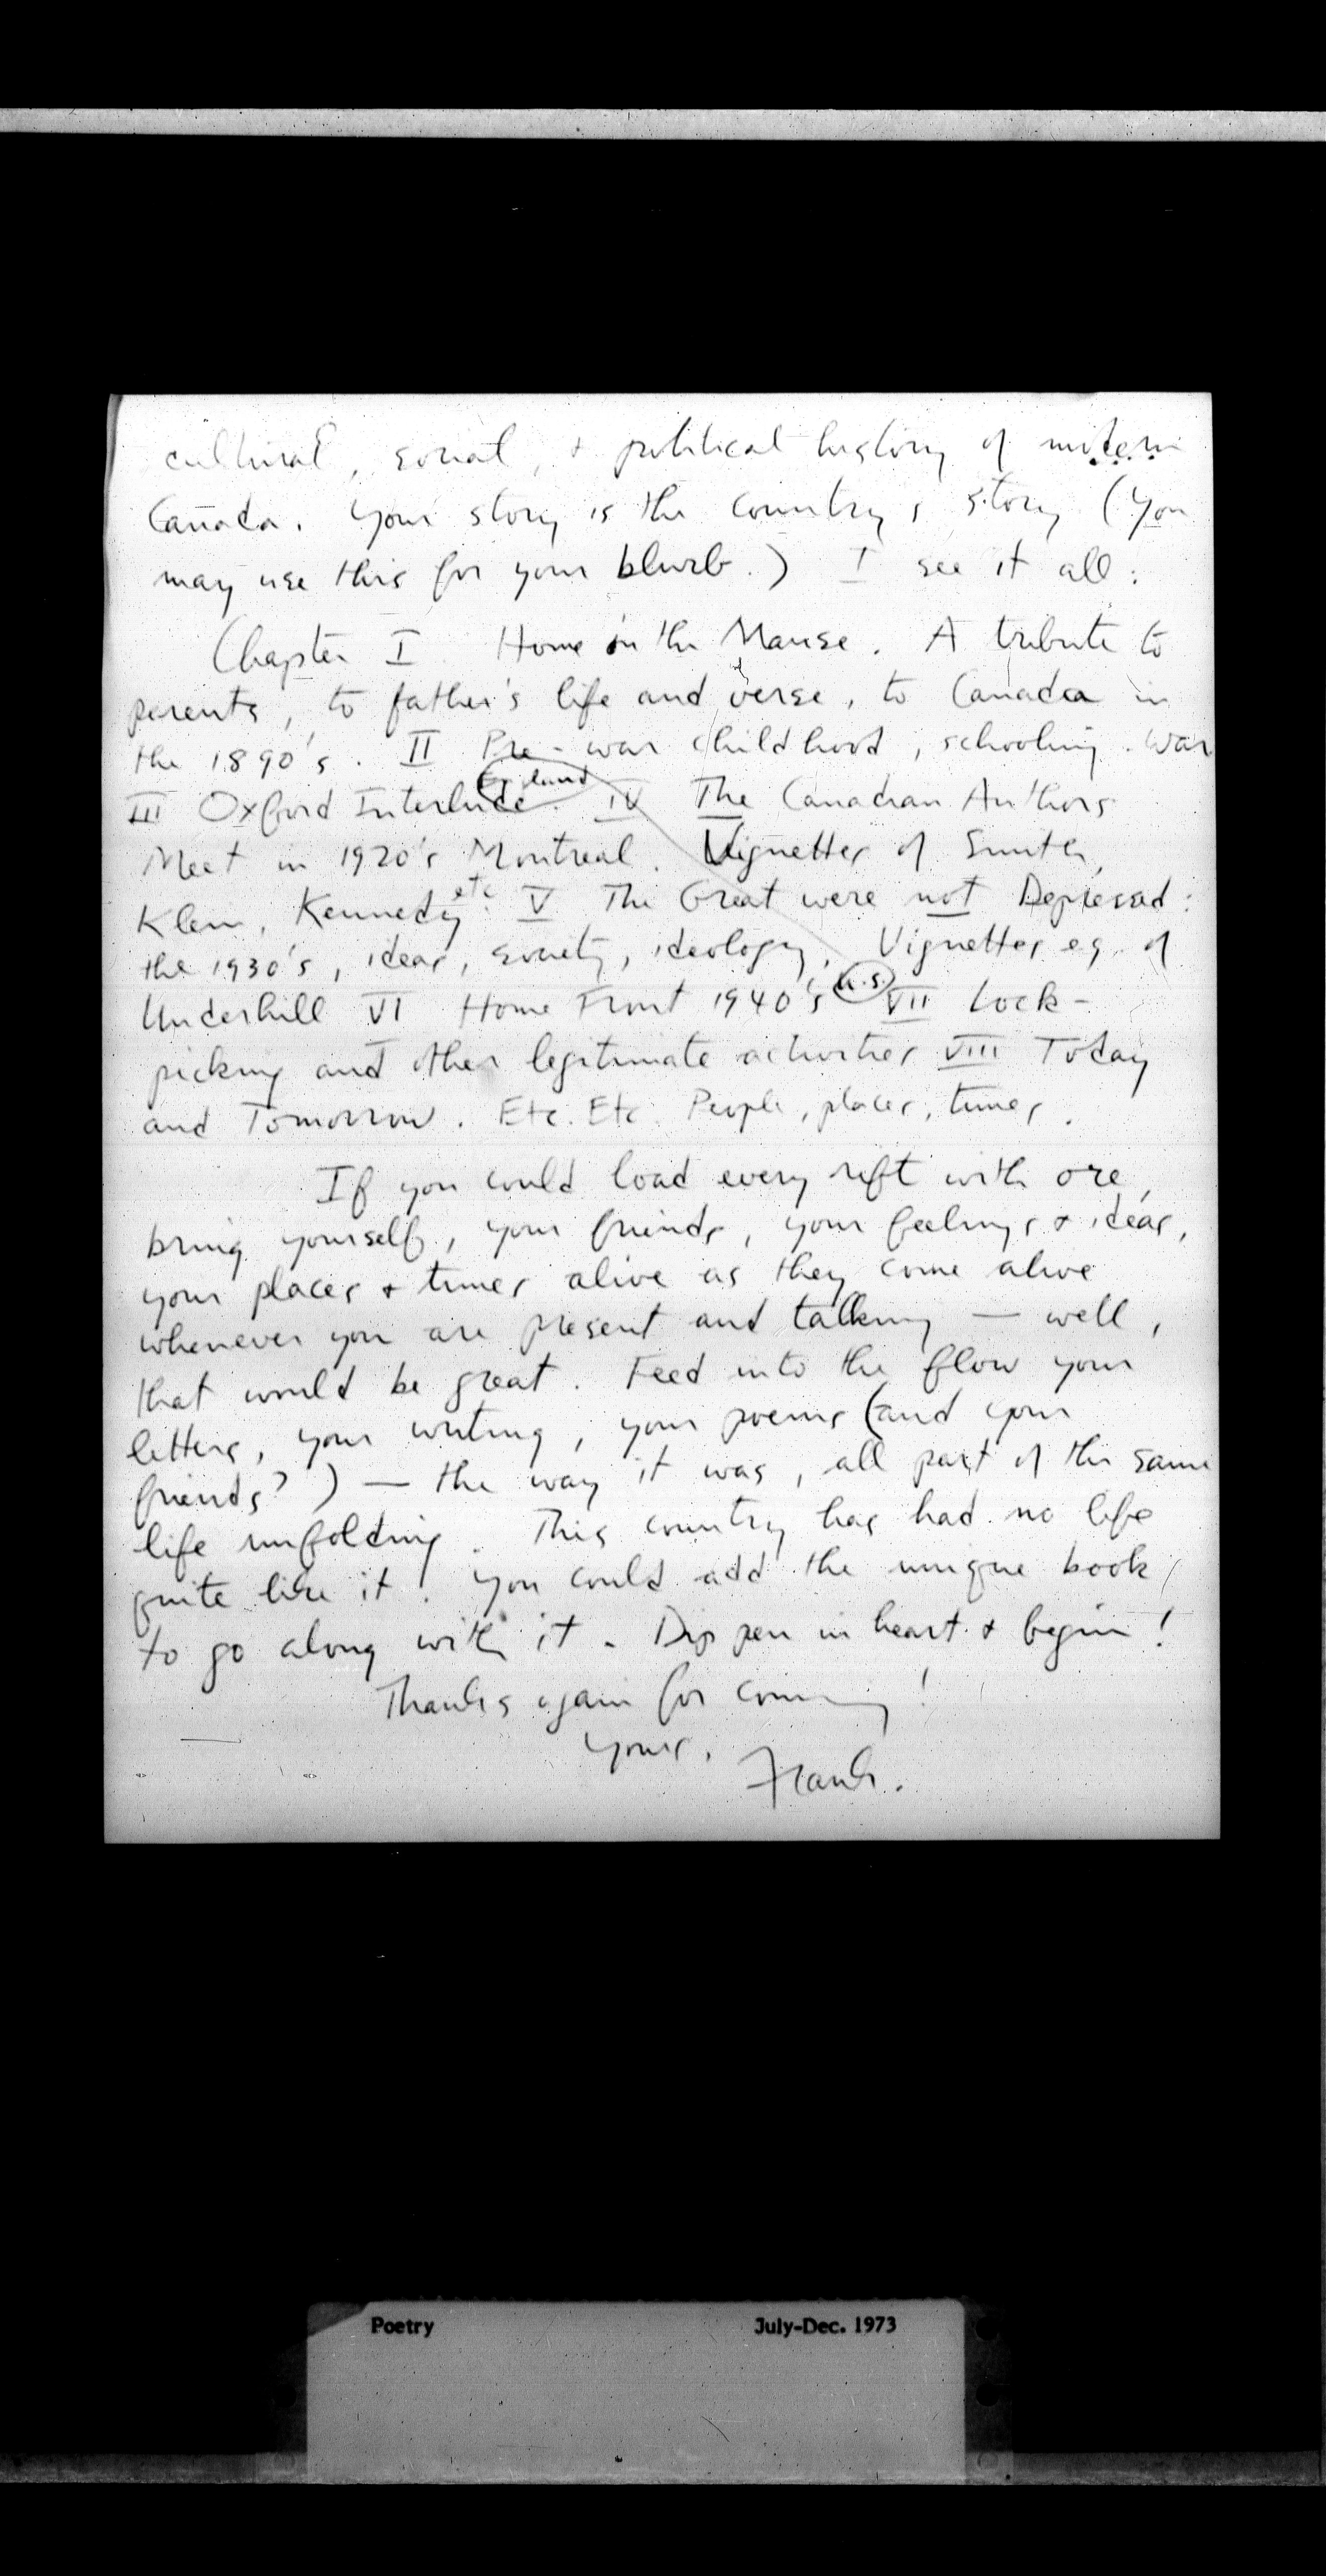 cultural, social, & political history of modern
Canada. Your story is the country's story (You
may use this for your blurb.) I see it all:
Chapter I Home in the Manse. A tribute to
parents, to father's life and verse, to Canada in
the 1890's. II Pre-war childhood, schooling. War
England
III Oxford Interlude. IV The Canadian Authors
Meet in 1920's Montreal. Vignettes of Smith,
Klein, Kennedy etc. V The Great were not Depressed:
the 1930's, ideas, society, ideology. Vignettes eg. of
Underhill VI Home Front 1940's U.S. VII Lock-
picking and other legitimate activities VIII Today
and Tomorrow. Etc. Etc. People, places, times.
If you could load every rift with ore,
bring yourself, your friends, your feelings & ideas,
your places & times alive as they come alive
whenever you are present and talking — well,
that would be great. Feed into the flow your
letters, your writing, your poems (and your
friends'?) — the way it was, all part of the same
life unfolding. This country has had no life
quite like it. You could add the unique book
to go along with it. Dip pen in heart & begin!
Thanks again for coming!
Yours,
Frank.
Poetry July-Dec. 1973